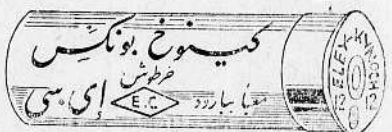 كينوخ بونكس
خرطوش
معبأ ببارود E.C إى. سى
ELEY-KYNOCH
12 12